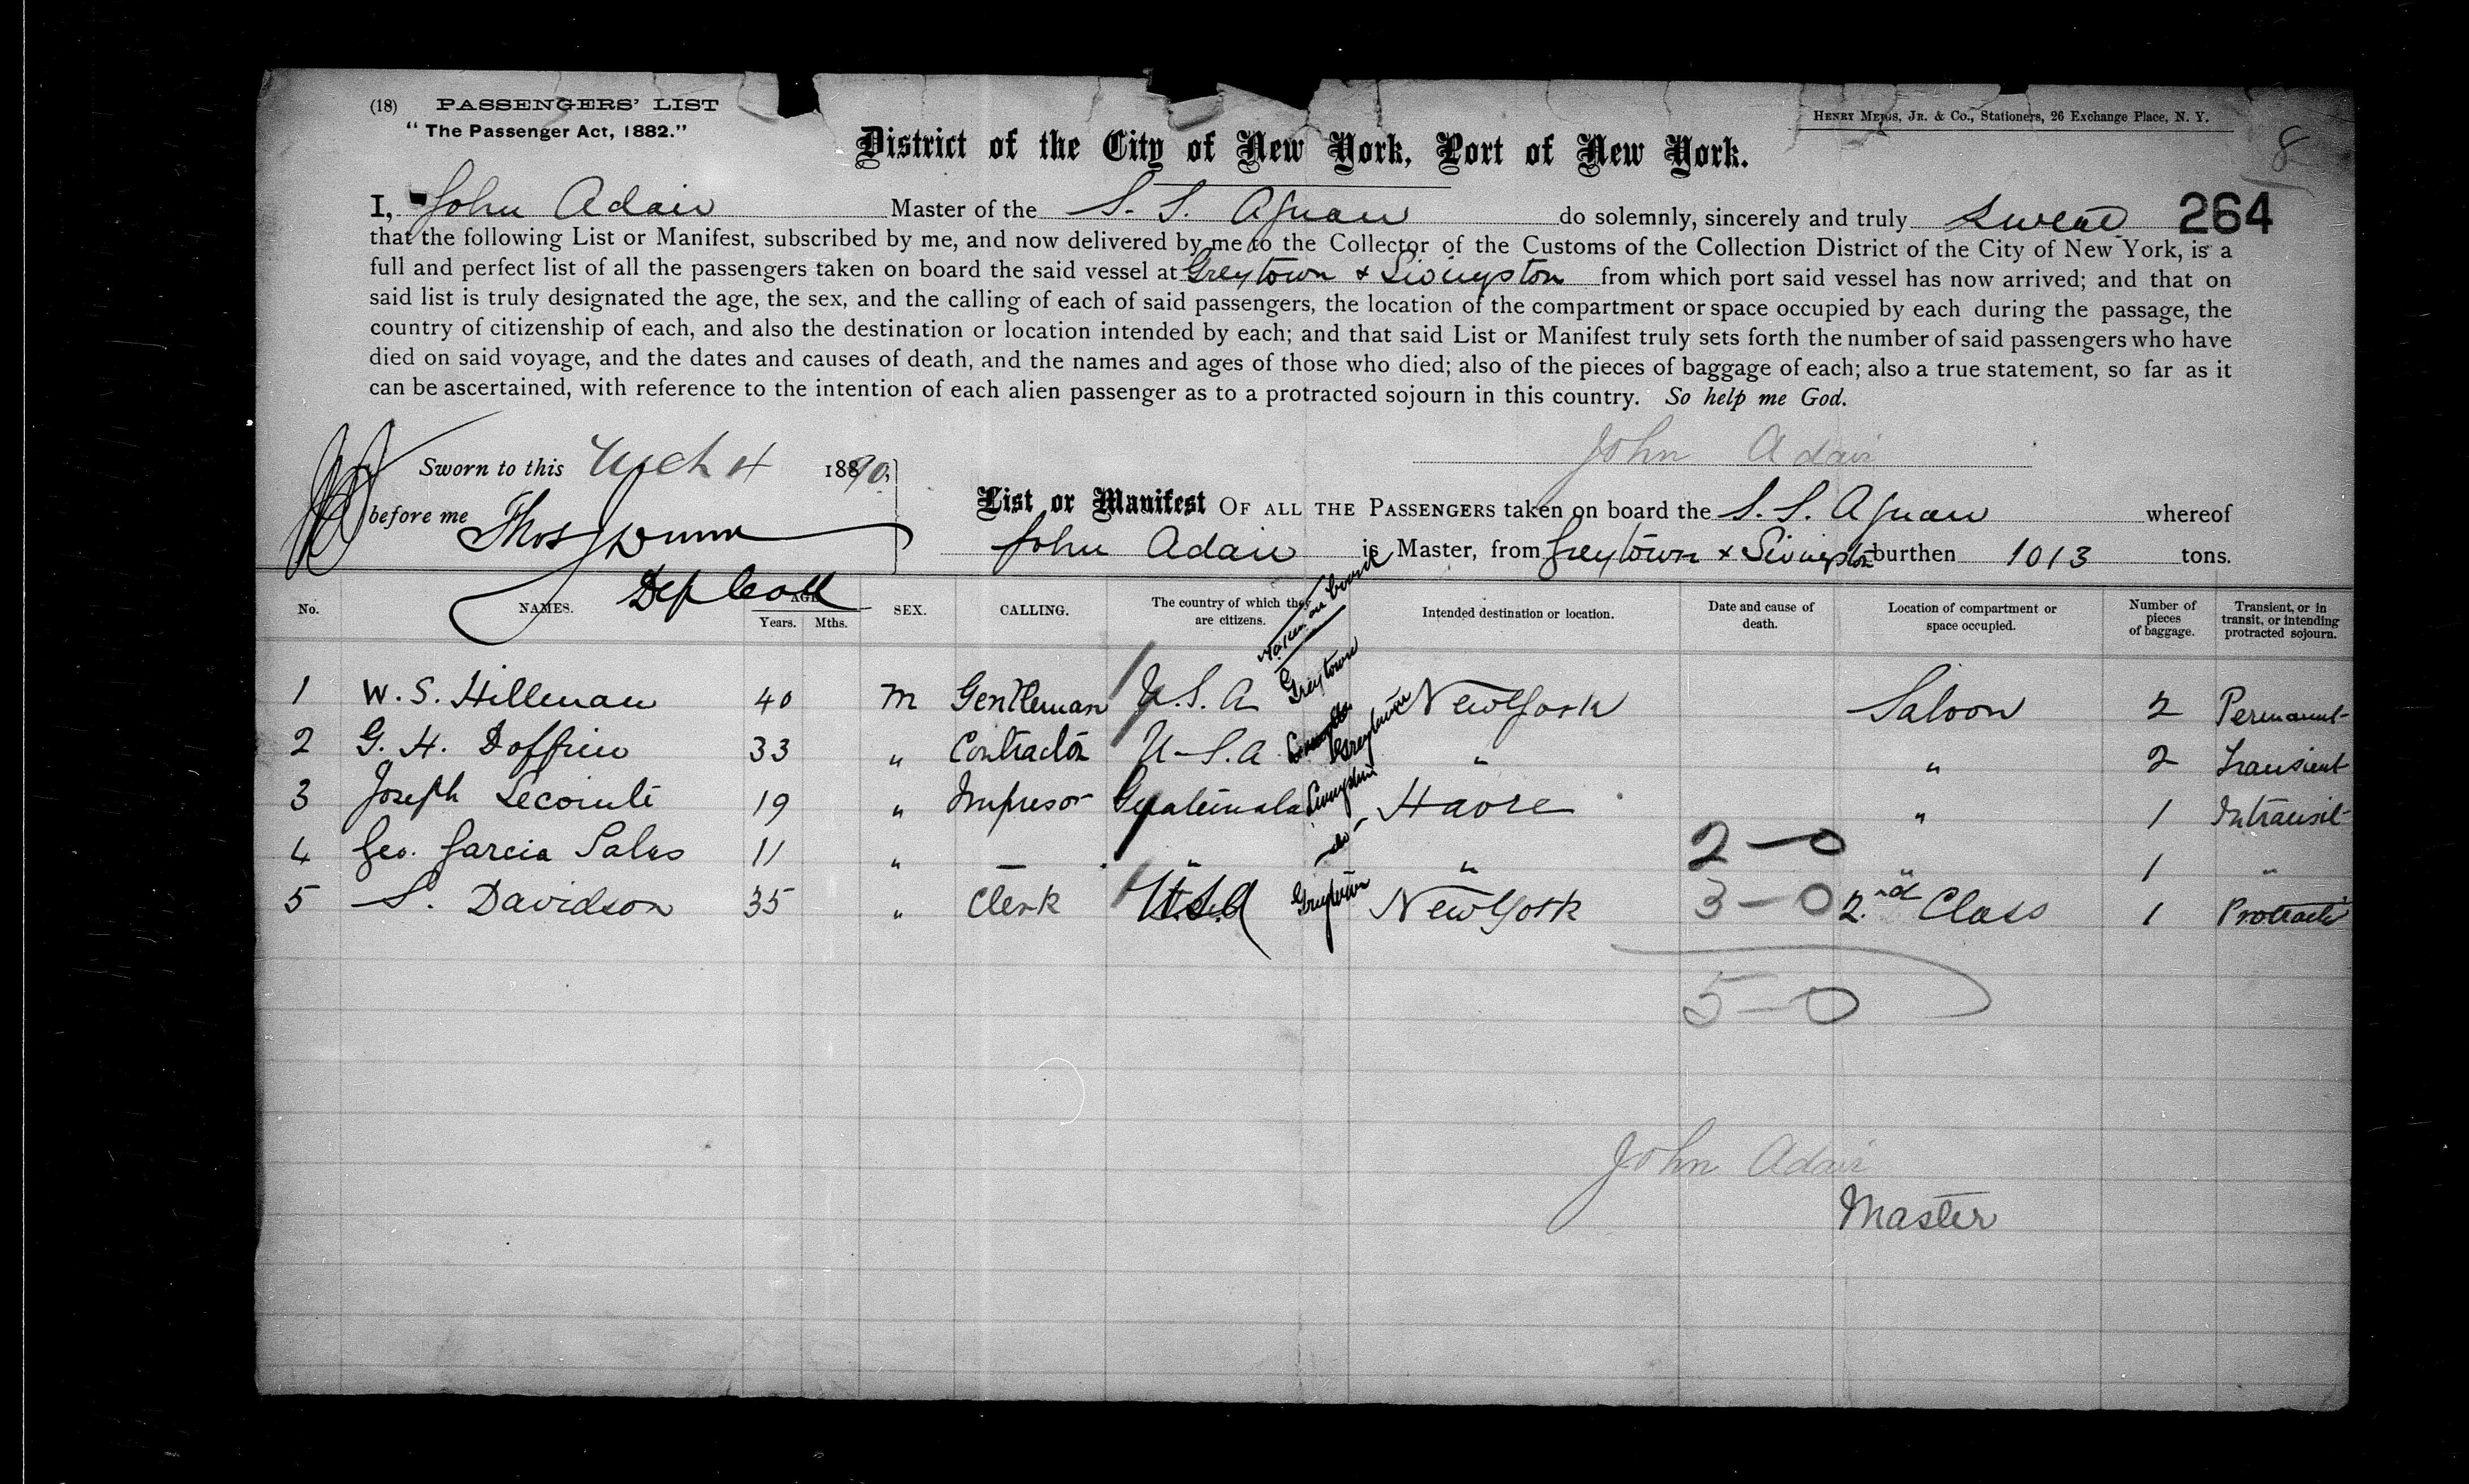 (18) PASSENGERS' LIST
"The Passenger Act, 1882."
HENRY MEIGS, JR. & CO., Stationers, 26 Exchange Place, N. Y.
8
District of the City of New York, Port of New York.
I, John Adair Master of the S. S. Aguan do solemnly, sincerely and truly swear 264
that the following List or Manifest, subscribed by me, and now delivered by me to the Collector of the Customs of the Collection District of the City of New York, is a
full and perfect list of all the passengers taken on board the said vessel at Greytown & Livingston from which port said vessel has now arrived; and that on
said list is truly designated the age, the sex, and the calling of each of said passengers, the location of the compartment or space occupied by each during the passage, the
country of citizenship of each, and also the destination or location intended by each; and that said List or Manifest truly sets forth the number of said passengers who have
died on said voyage, and the dates and causes of death, and the names and ages of those who died; also of the pieces of baggage of each; also a true statement, so far as it
can be ascertained, with reference to the intention of each alien passenger as to a protracted sojourn in this country. So help me God.
John Adair
Sworn to this Mch 4 1890.
before me Thos Dunn
Dep Coll
List or Manifest OF ALL THE PASSENGERS taken on board the S. S. Aguan whereof
John Adair is Master, from Greytown & Livingston burthen 1013 tons.
No. NAMES. AGE Years. Mths. SEX. CALLING. The country of which they are citizens. taken on board Intended destination or location. Date and cause of death. Location of compartment or space occupied. Number of pieces of baggage. Transient, or in transit, or intending protracted sojourn.
1 W. S. Hillman 40 M Gentleman U.S.A Greytown New York Saloon 2 Permanent
2 G. H. 33 " Contractor U-S.A Greytown " " 2 Transient
3 Joseph Lecointe 19 " Impresor Guatemala Livingston Havre " 1 Intransit
4 Geo. Garcia Salas 11 " — " -do- " 2-0 " 1 "
5 S. Davidson 35 " Clerk U.S.A Greytown New York 3-0 2nd Class 1 Protracted
5-0
John Adair
Master